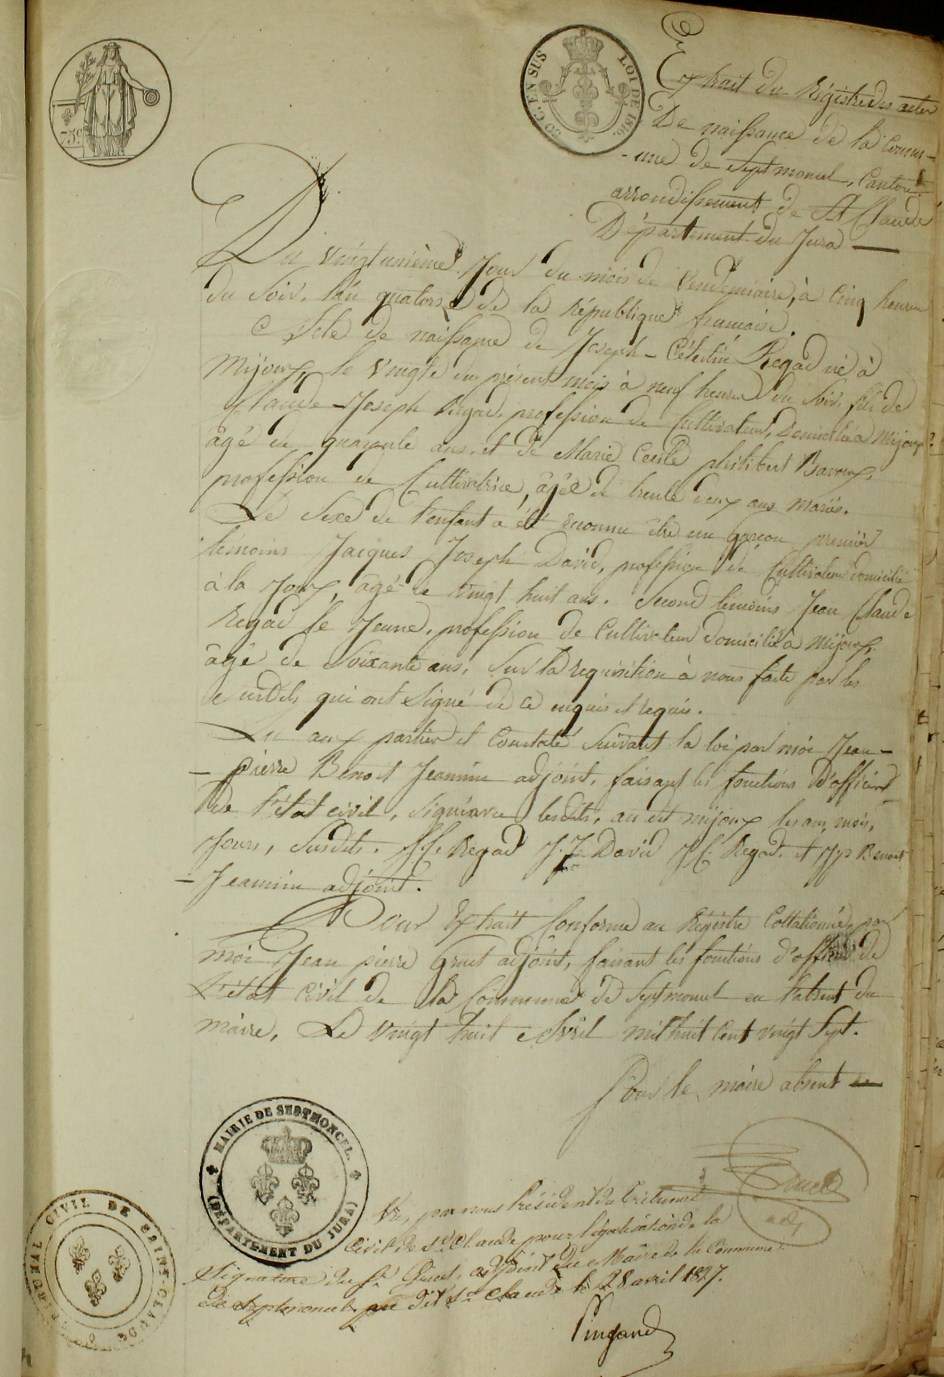 75c
50 C. EN SUS LOI DE 1816.
Extrait du Régistre des actes
De naissance de la Commu-
-ne de Septmoncel, Canton
arrondissement de St Claude
Département du Jura —
Du vingt unième Jour du mois de Vendemiaire, à Cinq heures
du Soir, L'an quatorze de la République française.
Acte de naissance de Joseph-Célestin Regad né à
Mijoux, le vingt du présent mois à neuf heures du Soir, fils de
Claude-Joseph Regad, profession de Cultivateur, Domicilié à Mijoux
âgé de quarante ans, et de Marie Cecile philibert Bavoux,
profession de Cultivatrice, âgée de trente deux ans mariés.
Le Sexe de l'enfant a été reconnu être un garçon premier
témoins Jacques Joseph David, profession de Cultivateur domicilié
à la Joux, âgé de vingt huit ans. Second temoins Jean Claude
Regad le Jeune, profession de Cultivateur domicilié à Mijoux,
âgé de Soixante ans, Sur la requisition à nous faite par les
susdits qui ont Signé de ce enquis et requis.
Lu aux parties et Constaté Suivant la loi par moi Jean-
-pierre Benoit Jeannin adjoint, faisant les fonctions d'officier
de l'état civil, Signé avec lesdits, au dit mijoux les an, mois,
Jours, Susdits. J. C. Regad J. J. David J C Regad. et J pr Benoit
-Jeannin adjoint.
Pour Extrait Conforme au Régistre Collationné, par
moi Jean pierre Gruet adjoint, faisant les fonctions d'officier de
L'état Civil de la Commune de Septmoncel en l'absent du
maire, Le vingt huit Avril mil huit Cent vingt Sept.
Pour le maire absent
Gruet
adj
MAIRIE DE SEPTMONCEL
(DÉPARTEMENT DU JURA)
TRIBUNAL CIVIL DE SAINT-CLAUDE
Vu, par nous Président du Tribunal
Civil de St Claude pour légalisation de la
Signature du Sr Gruet, adjoint du Maire de la Commune
De Septmoncel, au dit St Claude le 28 avril 1827.